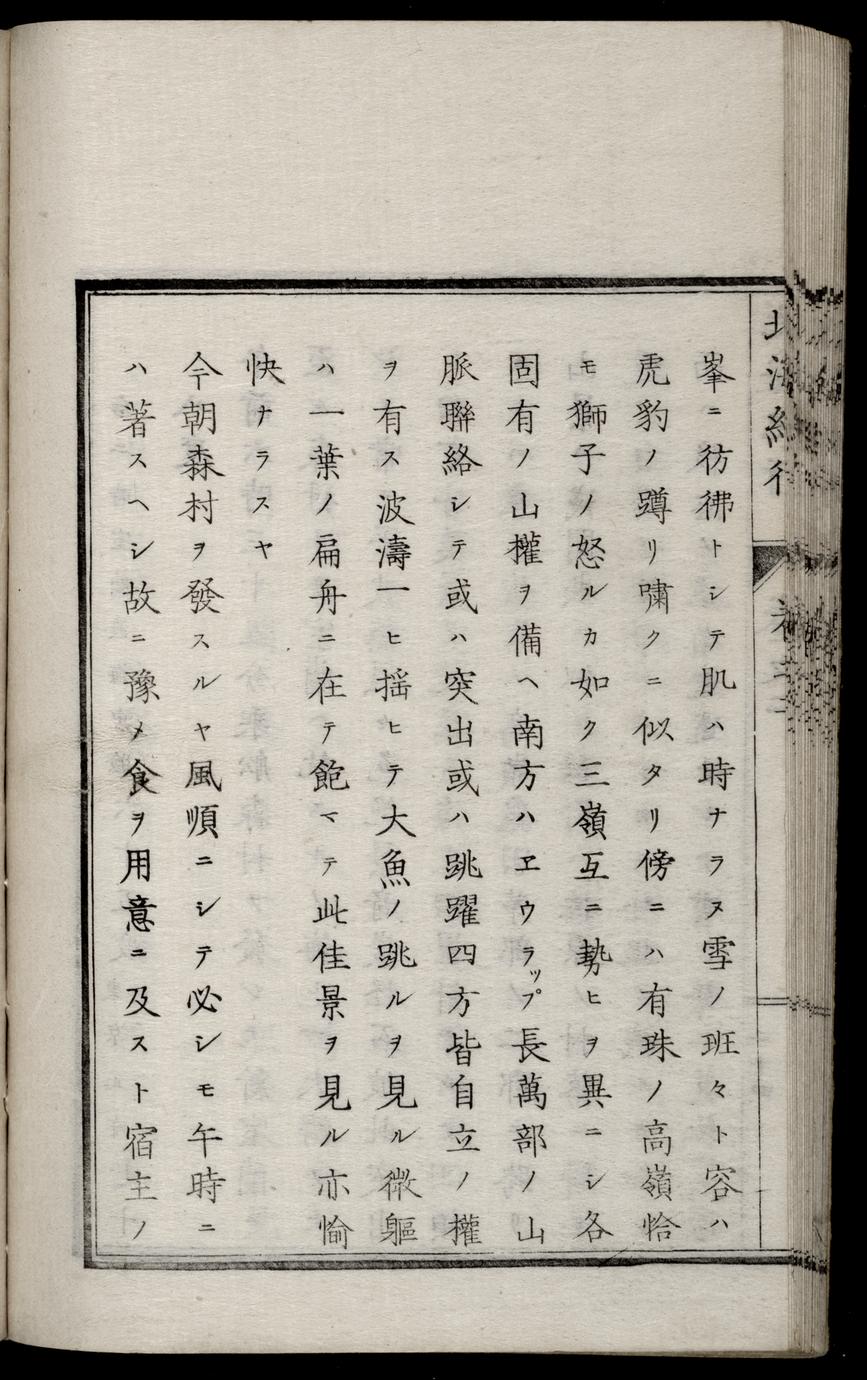 北海紀行
巻之二
峯ニ彷彿トシテ肌ハ時ナラヌ雪ノ班々ト容ハ
虎豹ノ蹲リ嘯クニ似タリ傍ニハ有珠ノ高嶺恰
モ獅子ノ怒ルカ如ク三嶺互ニ勢ヒヲ異ニシ各
固有ノ山權ヲ備ヘ南方ハヱウラップ長萬部ノ山
脈聯絡シテ或ハ突出或ハ跳躍四方皆自立ノ權
ヲ有ス波濤一ヒ揺ヒテ大魚ノ跳ルヲ見ル微軀
ハ一葉ノ扁舟ニ在テ飽マテ此佳景ヲ見ル亦愉
快ナラスヤ
今朝森村ヲ發スルヤ風順ニシテ必シモ午時ニ
ハ著スヘシ故ニ豫メ食ヲ用意ニ及スト宿主ノ